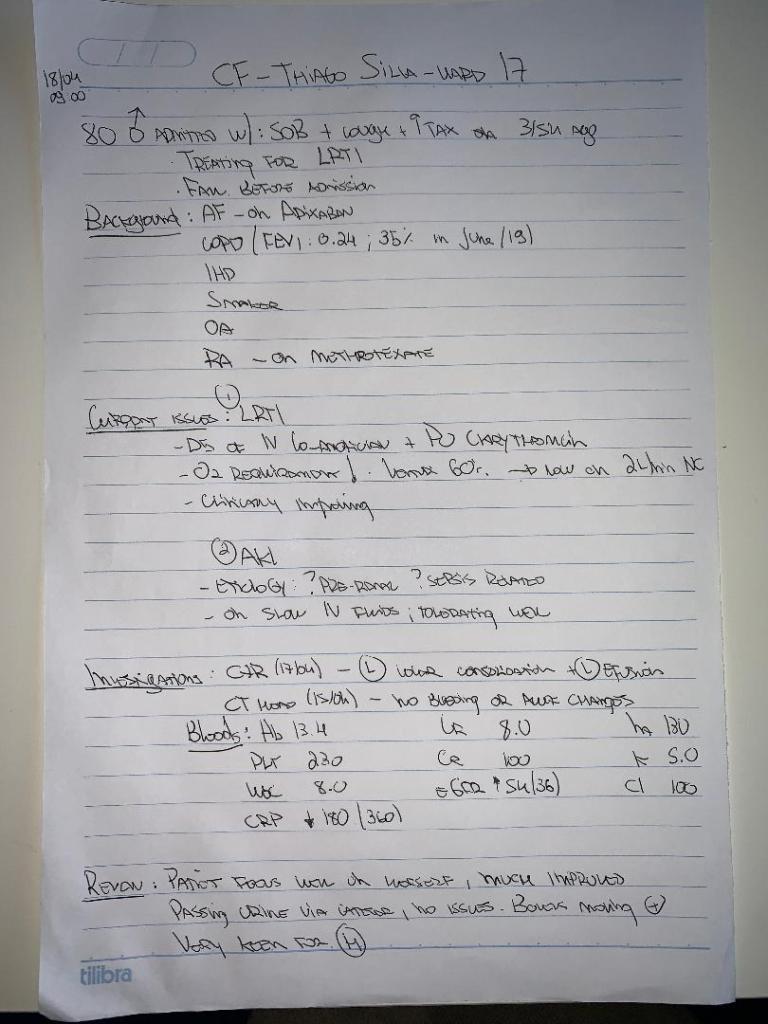 18/04
09:00
CF - THIAGO SILVA - WARD 17
80 ♂ ADMITTED W/: SOB + cough + ↑ on 3/52 AGO
· TREATING FOR LRTI
· FALL BEFORE ADMISSION
BACKGROUND: AF - on APIXABAN
COPD (FEV1: 0.24 ; 35% in June/19)
IHD
SMOKER
OA
RA - on METHOTREXATE
①
CURRENT ISSUES: LRTI
- D5 OF IV CO-AMOXICLAV + PO CLARYTHOMCIN
- O2 REQUIREMENT ↓. 60%. → now on 2L/min NC
- CLINICALLY improving
② AKI
- ETIOLOGY: ? PRE-RENAL ? SEPSIS RELATED
- on SLOW IV FLUIDS ; TOLERATING WELL
INVESTIGATIONS: CXR (17/04) - Ⓛ LOWER CONSOLIDATION + Ⓛ EFUSION
CT HEAD (15/04) - NO BLEEDING OR CHANGES
Bloods: Hb 13.4 UR 8.0 Na 130
PLT 230 CR 100 K 5.0
WBC 8.0 EGFR ↑ 54 (36) Cl 100
CRP ↓ 180 (360)
REVIEW: WELL IN , MUCH IMPROVED
PASSING URINE VIA CATETER, NO ISSUES. BOWELS MOVING ⊕
VERY KEEN FOR Ⓗ
tilibra